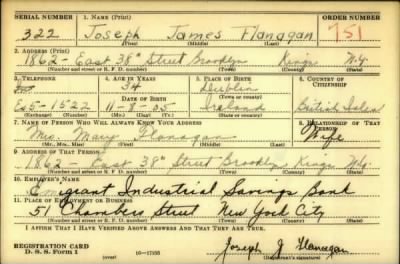 SERIAL NUMBER 1. NAME (Print) ORDER NUMBER
322 Joseph James Flanagan 751
(First) (Middle) (Last)
2. ADDRESS (Print)
1862 - East 38th Street Brooklyn Kings N.Y.
(Number and street or R. F. D. number) (Town) (County) (State)
3. TELEPHONE 4. AGE IN YEARS 5. PLACE OF BIRTH 6. COUNTRY OF CITIZENSHIP
34 Dublin
DATE OF BIRTH (Town or county)
Es5-1522 11-8-05 Ireland British
(Exchange) (Number) (Mo.) (Day) (Yr.) (State or country)
7. NAME OF PERSON WHO WILL ALWAYS KNOW YOUR ADDRESS 8. RELATIONSHIP OF THAT PERSON
Mrs. Mary Flanagan Wife
(Mr., Mrs., Miss) (First) (Middle) (Last)
9. ADDRESS OF THAT PERSON
1862 - East 38th Street Brooklyn Kings N.Y.
(Number and street or R. F. D. number) (Town) (County) (State)
10. EMPLOYER'S NAME
Emigrant Industrial Savings Bank
11. PLACE OF EMPLOYMENT OR BUSINESS
51 Chambers Street New York City
(Number and street or R. F. D. number) (Town) (County) (State)
I AFFIRM THAT I HAVE VERIFIED ABOVE ANSWERS AND THAT THEY ARE TRUE.
REGISTRATION CARD
D. S. S. Form 1 (over) Joseph J Flanagan
(Registrant's signature)